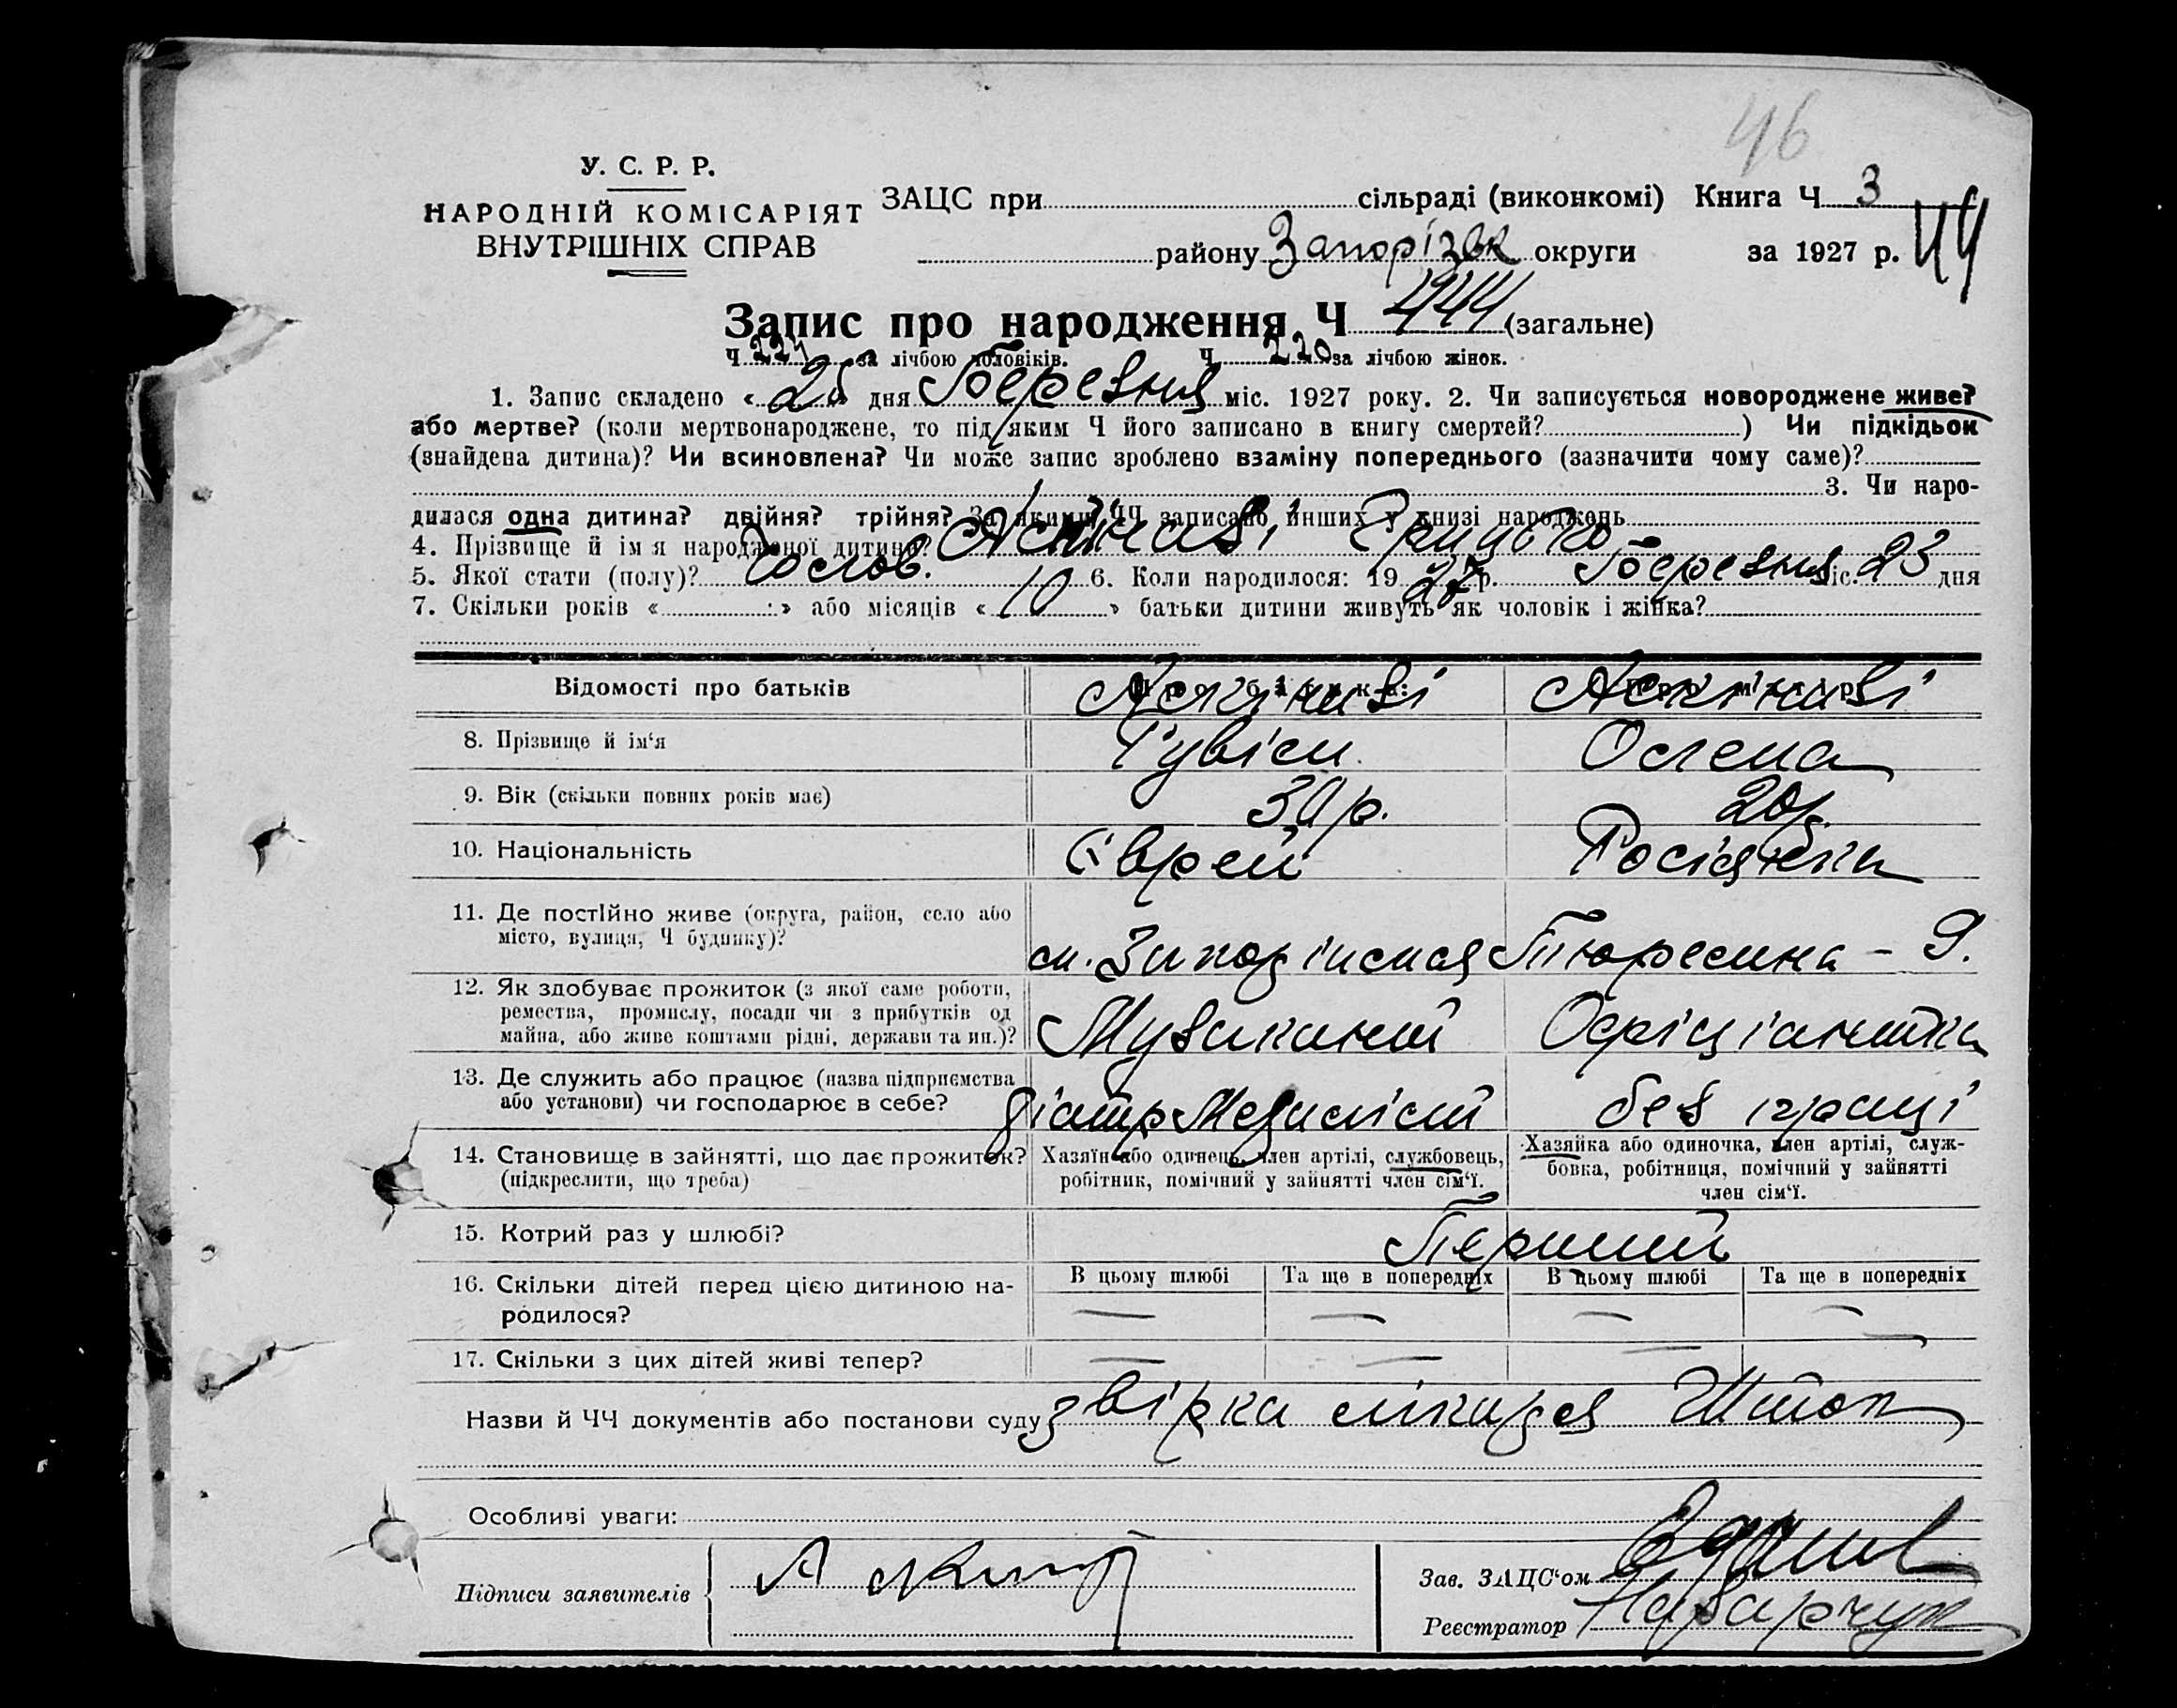 46
У. С. Р. Р.
НАРОДНІЙ КОМІСАРІЯТ
ВНУТРІШНІХ СПРАВ
ЗАЦС при сільраді (виконкомі) Книга Ч 3
району Запорізьк округи за 1927 р. 44
Запис про народження, Ч 444 (загальне)
Ч 224 за лічбою чоловіків. Ч 220 за лічбою жінок.
1. Запис складено « 25 » дня Березня міс. 1927 року. 2. Чи записується новороджене живе?
або мертве? (коли мертвонароджене, то під яким Ч його записано в книгу смертей? ) Чи підкідьок
(знайдена дитина)? Чи всиновлена? Чи може запис зроблено взаміну попереднього (зазначити чому саме)?
3. Чи наро-
дилася одна дитина? двійня? трійня? За якими ЧЧ записано инших у книзі народжень
4. Прізвище й ім'я народженої дитини? Аскіназі Грицько
5. Якої стати (полу)? Чолов. 6. Коли народилося: 19 27 р. Березня міс. 23 дня
7. Скільки років « » або місяців « 10 » батьки дитини живуть як чоловік і жінка?
Відомості про батьків Про батька: Про матір: Аскіназі Аскіназі
8. Прізвище й ім'я Рувім Олена
9. Вік (скільки повних років має) 30 р. 20 р.
10. Національність Єврей Росіянка
11. Де постійно живе (округа, район, село або
місто, вулиця, Ч будинку)? м. - 9.
12. Як здобуває прожиток (з якої саме роботи,
ремества, промислу, посади чи з прибутків од
майна, або живе коштами рідні, держави та ин.)? Офіціантка
13. Де служить або працює (назва підприємства
або установи) чи господарює в себе? без праці
14. Становище в зайнятті, що дає прожиток?
(підкреслити, що треба)
Хазяїн або одинець, член артілі, службовець,
робітник, помічний у зайнятті член сім'ї.
Хазяйка або одиночка, член артілі, служ-
бовка, робітниця, помічний у зайнятті
член сім'ї.
15. Котрий раз у шлюбі? Перший
16. Скільки дітей перед цією дитиною на-
родилося?
В цьому шлюбі Та ще в попередніх В цьому шлюбі Та ще в попередніх
— — — —
17. Скільки з цих дітей живі тепер? — — — —
Назви й ЧЧ документів або постанови суду звірка лікаря
Особливі уваги:
Підписи заявителів
Зав. ЗАЦС'ом
Реєстратор